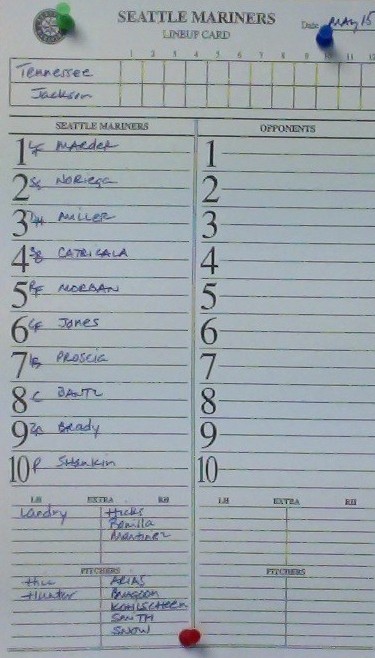 SEATTLE MARINERS
LINEUP CARD
Date May 15
1 2 3 4 5 6 7 8 9 10 11 12
Tennessee
Jackson
SEATTLE MARINERS
1 LF Marder
2 SS Noriega
3 DH Miller
4 3B CATRICALA
5 RF MORBAN
6 CF Jones
7 1B PROSCIA
8 C BANTZ
9 2B Brady
10 P Shankin
OPPONENTS
1
2
3
4
5
6
7
8
9
10
LH EXTRA RH
Landry Hicks
Bonilla
Martinez
PITCHERS
Hill ARIAS
Hunter BURGOON
KOHLSCHEEN
SMITH
SNOW
LH EXTRA RH
PITCHERS